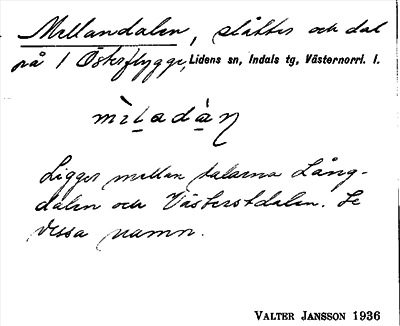 Mellandalen, slåtter och dal
på 1 Österflygge, Lidens sn, Indals tg, Västernorrl. l.
mèl̠adȧ̠ n
Ligger mellan dalarna Lång-
dalen och Västerstdalen. Se
dessa namn.
VALTER JANSSON 1936